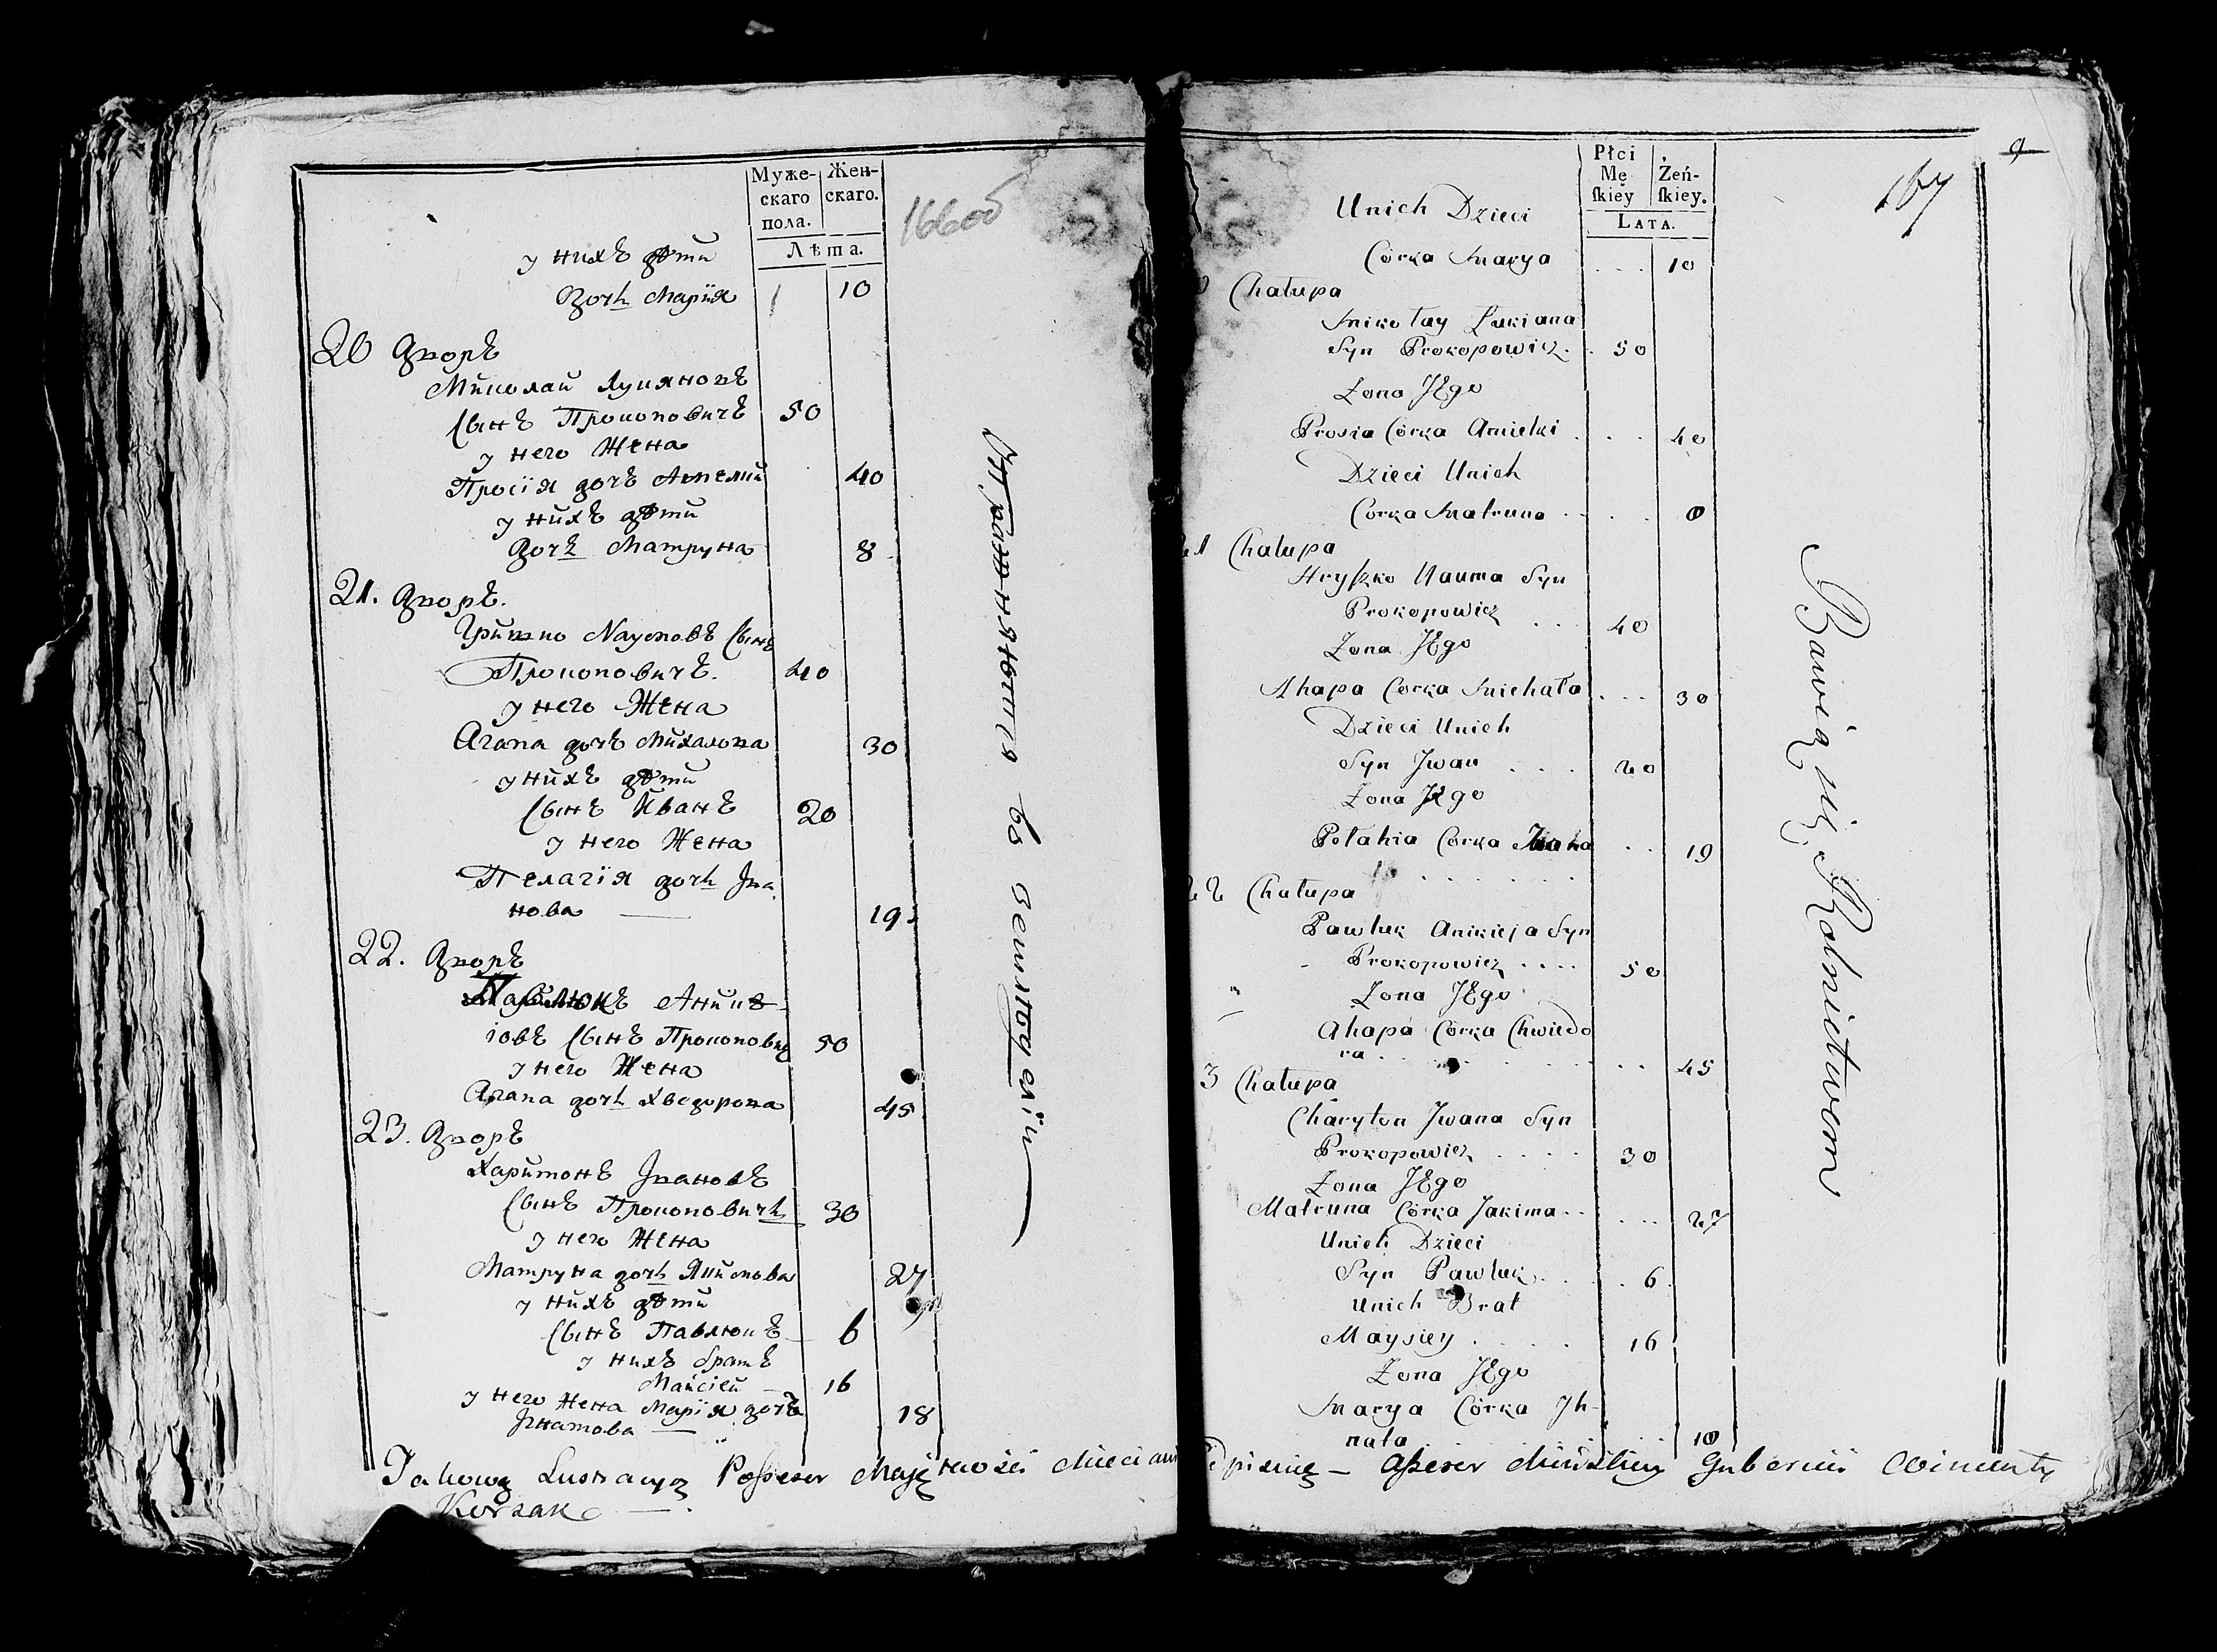 Муже-
скаго
пола.
Жен-
скаго.
Лѣта.
166об
у нихъ дѣти
дочь Марїя 10
20 дворъ
Миколай Лукяновъ
Сынъ Прокоповичъ 50
у него Жена
Просїя дочъ 40
у нихъ дѣти
дочъ Матруна 8
21. дворъ.
Гришко Наумовъ Сынъ
Прокоповичъ. 40
у него Жена
Агапа дочъ Михалова 30
у нихъ дѣти
Сынъ Иванъ 20
у него Жена
Пелагїя дочь Ива
нова 19
22. дворъ
Павлюкъ Аникѣ
іовъ Сынъ Прокоповичъ 50
у него Жена
Агапа дочь Хведорова 45
23. дворъ
Харитонъ Ивановъ
Сынъ Прокоповичь 30
у него Жена
Матруна дочь Якимова 27
у нихъ дѣти
Сынъ Павлюкъ 6
у нихъ братъ
Майсiей 16
у него Жена Марїя дочъ
Игнатова 18
Упражняются въ земледелiи
Płci
Mę
skiey
Żeń-
skiey.
LATA.
9
167
Unich Dzieci
Córka Marya . . . 10
Chałupa
Mikołay Łukiana
Syn Prokopowicz . . 50
Żona JEgo
Prosia Córka . . . 40
Dzieci Unich
Corka Matruna . . . 8
21 Chałupa
Hryszko Nauma Syn
Prokopowicz . . . 40
Żona JEgo
Ahapa Corka Michała . . . 30
Dzieci Unich
Syn Jwan . . . 20
Żona JEgo
Połahia Córka Jwana . . 19
22 Chałupa
Pawluk Anikieja Syn
Prokopowicz . . . . 50
Żona JEgo
Ahapa Córka Chwiedo
ra . . . . 45
3 Chałupa
Charyton Jwana Syn
Prokopowicz . . . . 30
Żona JEgo
Matruna Córka Jakima . . . . . 27
Unich Dzieci
Syn Pawluk . . . 6
Unich Brat
Maysiey . . . . 16
Żona JEgo
Marya Córka Jh-
nata . . . . 18
Bawią się Rolnictwem
Takową Lustracyą Possesor Maiętności podpisuię – Assesor Minskiey Gubernii Wincenty
Korzak